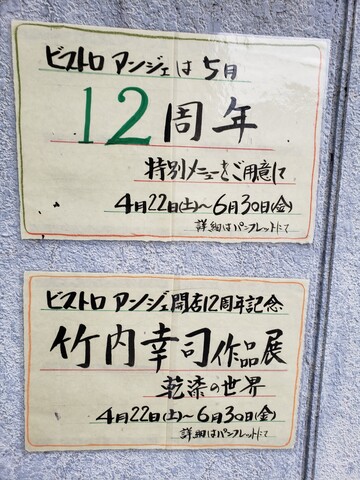 ビストロ アンジェは5月
12周年
特別メニューをご用意して
4月22日(土)~6月30日(金)
詳細はパンフレットにて
ビストロ アンジェ開店12周年記念
竹内幸司作品展
乾漆の世界
4月22日(土)~6月30日(金)
詳細はパンフレットにて